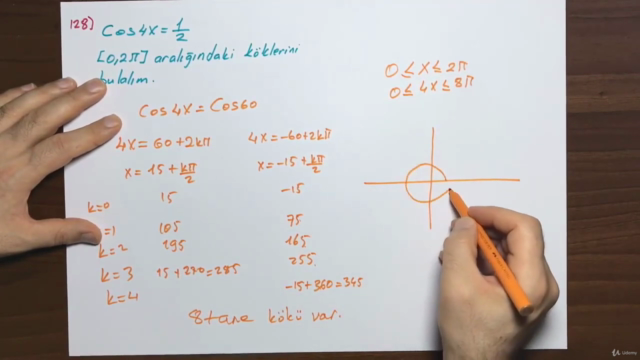 128) Cos4x = 1/2
[0,2π] aralığındaki köklerini
bulalım.
0 ≤ x ≤ 2π
0 ≤ 4x ≤ 8π
Cos4x = Cos60
4x = 60+2kπ
4x = -60+2kπ
x = 15 + kπ/2
x = -15 + kπ/2
k=0 15 -15
=1 105 75
k=2 195 165
k=3 15+270=285 255
k=4 -15+360=345
8 tane kökü var.
Udemy